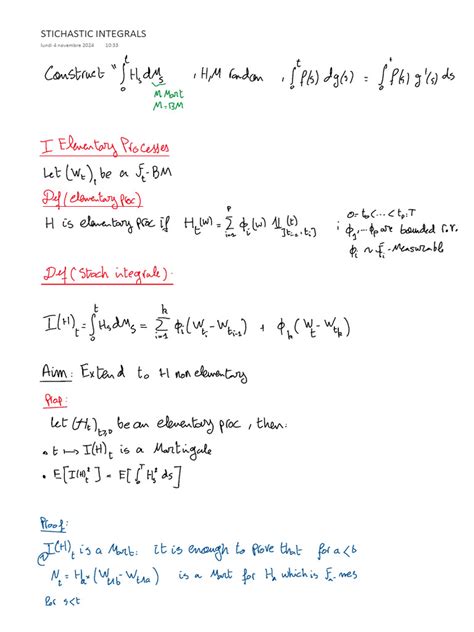 STICHASTIC INTEGRALS
lundi 4 novembre 2024 10:33
Construct " ∫₀ᵗ Hₛ dMₛ , H, M random , ∫₀ᵗ f(s) dg(s) = ∫₀ᵗ f(s) g'(s) ds
M Mart
M = BM
I Elementary Processes
Let (Wₜ)ₜ be a Fₜ-BM
Def (elementary proc)
H is elementary proc if Hₜ(w) = Σᵢ₌₁ᵖ ϕᵢ(w) 1_]tᵢ₋₁, tᵢ](t) ; 0 = t₀ < ... < tₚ = T
ϕ₁, ... ϕₚ are bounded r.v.
ϕᵢ Measurable
Def (Stoch integrale) :
I(H)ₜ = ∫₀ᵗ Hₛ dMₛ = Σᵢ₌₁ᵏ ϕᵢ (W_tᵢ - W_tᵢ₋₁) + ϕₖ (Wₜ - W_tₖ)
Aim : Extend to H non elementary
Prop :
Let (Hₜ)ₜ≥₀ be an elementary proc, then :
• t ↦ I(H)ₜ is a Martingale
• E[I(H)ₜ²] = E[∫₀ᵀ Hₛ² ds]
Proof :
I(H)ₜ is a Mart : it is enough to prove that for a < b
Nₜ = Hₐ × (W_t∧b - W_t∧a) is a Mart for Hₐ which is Fₐ-mes
For s < t